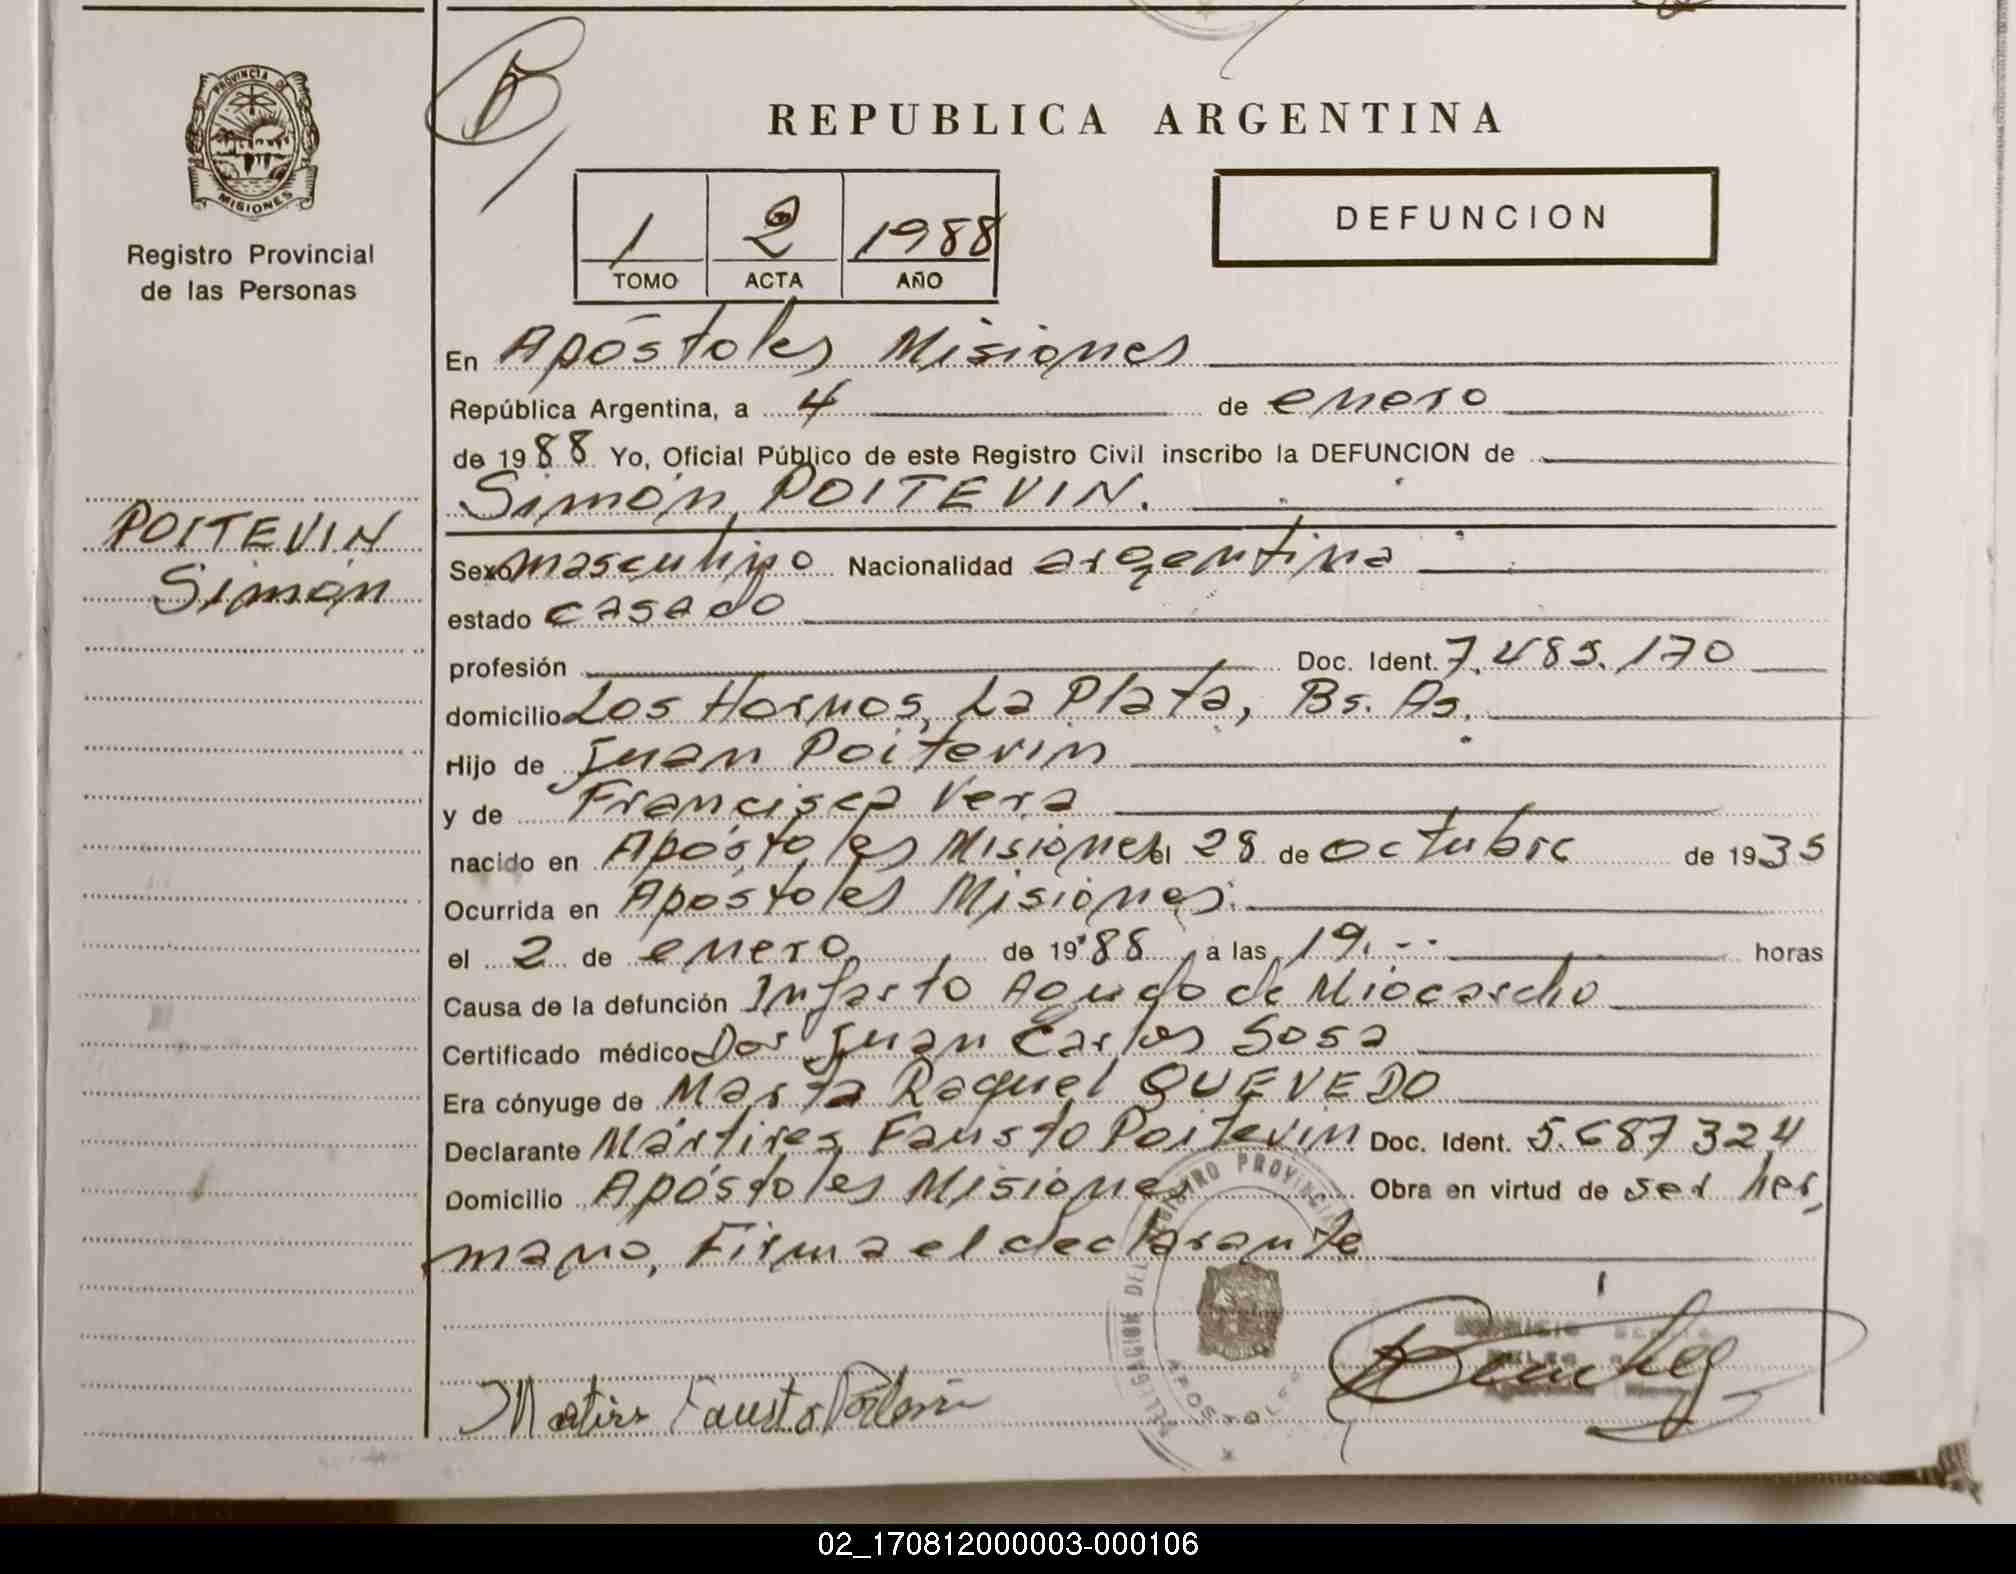 PROVINCIA DE
MISIONES
Registro Provincial
de las Personas
POITEVIN
Simón
REPUBLICA ARGENTINA
1 2 1988
TOMO ACTA AÑO
DEFUNCION
En Apóstoles Misiones
República Argentina, a 4 de enero
de 1988 Yo, Oficial Público de este Registro Civil inscribo la DEFUNCION de
Simón POITEVIN.
Sexo masculino Nacionalidad argentina
estado casado
profesión Doc. Ident. 7.485.170
domicilio Los Hornos, La Plata, Bs. As.
Hijo de Juan Poitevin
y de Francisca Vera
nacido en Apóstoles Misiones el 28 de octubre de 1935
Ocurrida en Apóstoles Misiones.
el 2 de enero de 1988 a las 19.-- horas
Causa de la defunción Infarto Agudo de Miocardio
Certificado médico Dor Juan Carlos Sosa
Era cónyuge de Marta Raquel QUEVEDO
Declarante Mártires Fausto Poitevin Doc. Ident. 5.687324
Domicilio Apóstoles Misiones Obra en virtud de ser her,
mano, Firma el declarante
DELEGACION DEL REGISTRO PROVINCIAL
APOSTOLES
Matires Fausto Poitevin
02_170812000003-000106